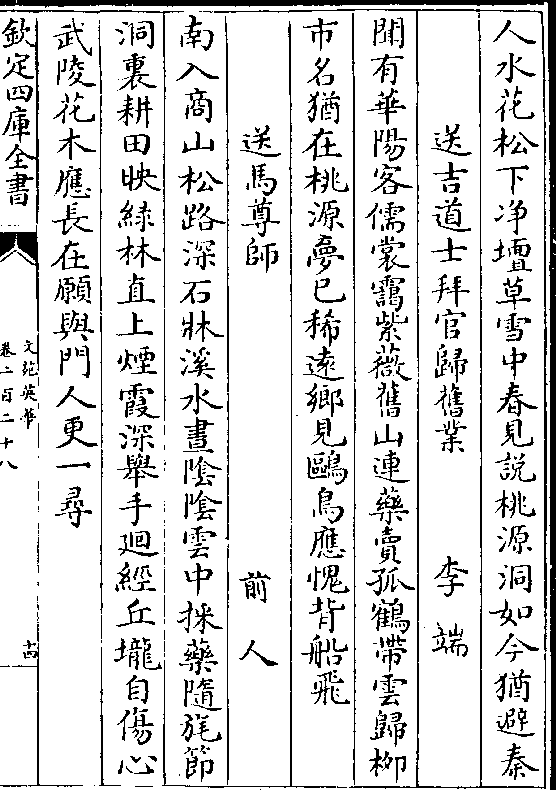 人水花松下净壇草雪中春見說桃源洞如今猶避秦
送吉道士拜官歸舊業　李端
聞有華陽客儒裳靄紫薇舊山連藥賣孤鶴帶雲歸栁
市名猶在桃源夢已稀遠鄉見鷗鳥應愧背船飛
送馬尊師　前人
南入商山松路深石牀溪水晝陰陰雲中採藥隨旄節
洞裏耕田映綠林直上煙霞深舉手廻經丘壠自傷心
武陵花木應長在願與門人更一尋
欽定四庫全書
文苑英華
卷二百二十八
十四